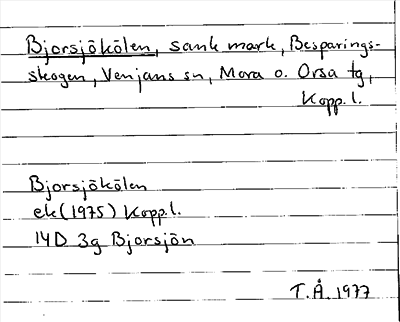 Bjorsjökölen, sank mark, Besparings-
skogen, Venjans sn, Mora o. Orsa tg,
Kopp. l.
Bjorsjökölen
ek (1975) Kopp. l.
14D 3g Bjorsjön
T.Å. 1977